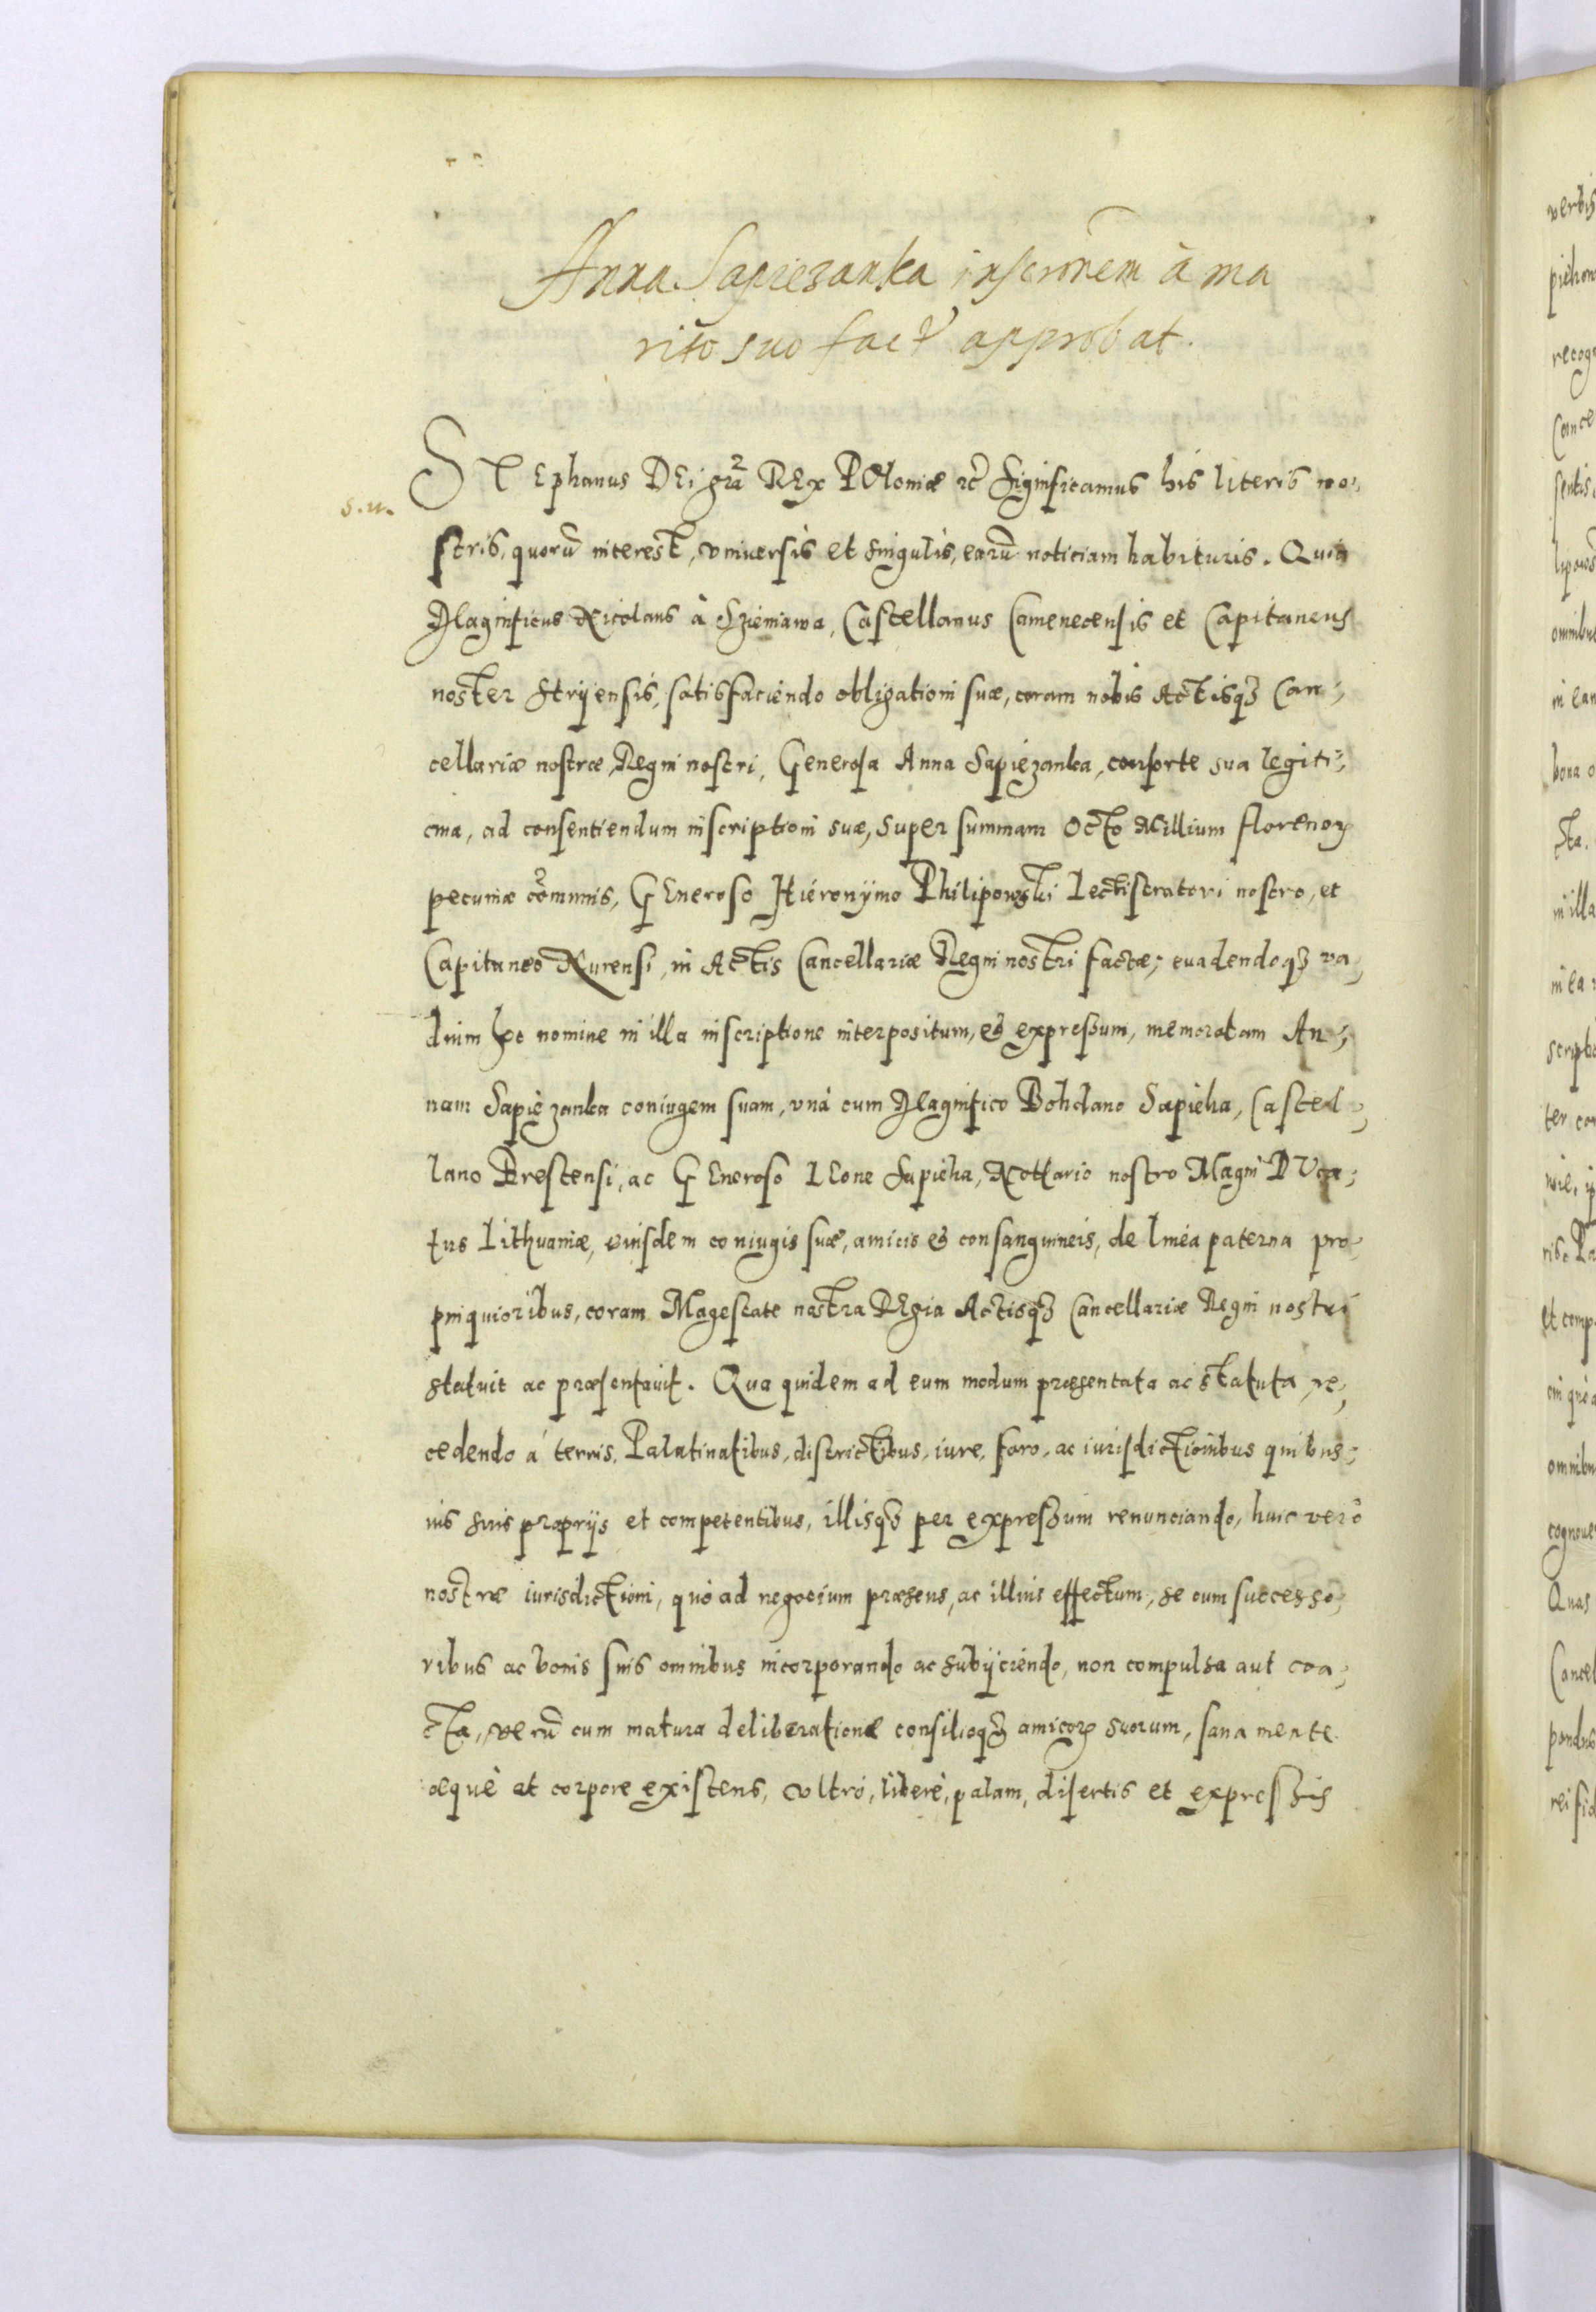 Anna Sapiezanka inscr̃onem à ma
rito suo fact̃ approbat.
s. n.
STEphanus DEi gr̃a REx POloniæ ⁊c̃ Significamus his literis no⸗
stris, quorũ interest, vniuersis et singulis, earũ noticiam habituris. Quia
Magnificus Nicolaus à Szieniawa, Castellanus Camenecensis et Capitaneus
noster Stryiensis, satisfaciendo obligationi suæ, coram nobis Actisqꝫ Can⸗
cellariæ nostræ Regni nostri, Generosa Anna Sapiezanka, consorte sua legiti⸗
ma, ad consentiendum inscriptioni suæ, super summam Octo Millium florenoꝝ
pecuniæ cõmunis, GEneroso Hieronÿmo Philipowski Lectistratori nostro, et
Capitaneo Nurensi, in Actis Cancellariæ Regni nostri factæ; euadendoqꝫ va⸗
dium hoc nomine in illa inscriptione interpositum, & expressum, memoratam An⸗
nam Sapiezanka coniugem suam, vnà cum Magnifico Bohdano Sapieha, Castel⸗
lano Brestensi, ac GEneroso LEone Sapieha, Nothario nostro Magni DVca⸗
tus Lithuaniæ, eiusdem coniugis suæ, amicis & consanguineis, de linea paterna pro⸗
pinquioribus, coram Magestate nostra REgia Actisqꝫ Cancellariæ Regni nostri
statuit ac præsentauit. Qua quidem ad eum modum præsentata ac statuta, re⸗
cedendo à terris, Palatinatibus, districtibus, iure, foro, ac iurisdictionibus quibus⸗
uis suis proprijs et competentibus, illisqꝫ per expressum renunciando, huic verò
nostræ iurisdictioni, quo ad negocium præsens, ac illius effectum, se cum successo⸗
ribus ac bonis suis omnibus incorporando ac subijciendo, non compulsa aut coa⸗
cta, verũ cum matura deliberatione consilioqꝫ amicoꝝ suorum, sana mente
æquè et corpore existens, vltrò, liberè, palam, disertis et expressis